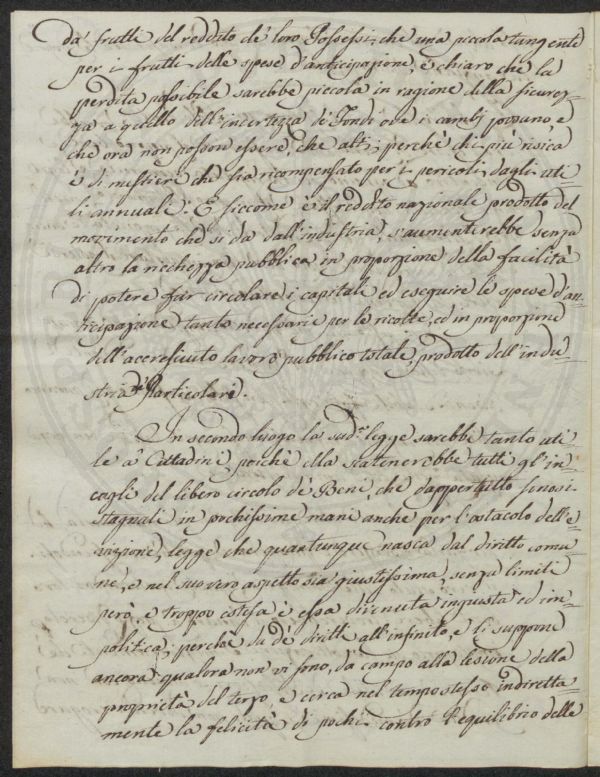 da' frutti del reddito de' loro Possessi, che una piccola tangente
per i frutti delle spese d'anticipazione, è chiaro che la
perdita possibile sarebbe piccola in ragione della sicurez=
za a quello dell'incertezza de' Fondi ove i cambj possano e
che ora non posson essere, che alti; perchè chi più risica
è di mestieri che sia ricompensato per i pericoli dagli uti=
li annuali. E siccome è il reddito nazionale prodotto del
movimento che si da dall'industria, s'aumenterebbe senza
altro la ricchezza pubblica in proporzione della facilità
di potere far circolare i capitali ed eseguire le spese d'an=
ticipazione tanto necessarie per le ricolte, ed in proporzione
dell'accresciuto lavoro pubblico totale, prodotto dell'indu=
stria de' Particolari.
In secondo luogo la sud.ª legge sarebbe tanto uti=
le a' Cittadini, perchè ella scatenerebbe tutti gl'in=
cagli del libero circolo de' Beni, che dappertutto sonosi
stagnati in pochissime mani anche per l'ostacolo dell'e=
vizione, legge che quantunque nasca dal diritto comu=
ne, e nel suo vero aspetto sia giustissima, senza limiti
però, e troppo estesa è essa divenuta ingiusta ed im=
politica; perchè dà de' diritti all'infinito, e li suppone
ancora qualora non vi sono, dà campo alla lesione della
proprietà del terzo, e cerca nel tempo stesso indiretta=
mente la felicità di pochi contro l'equilibrio delle